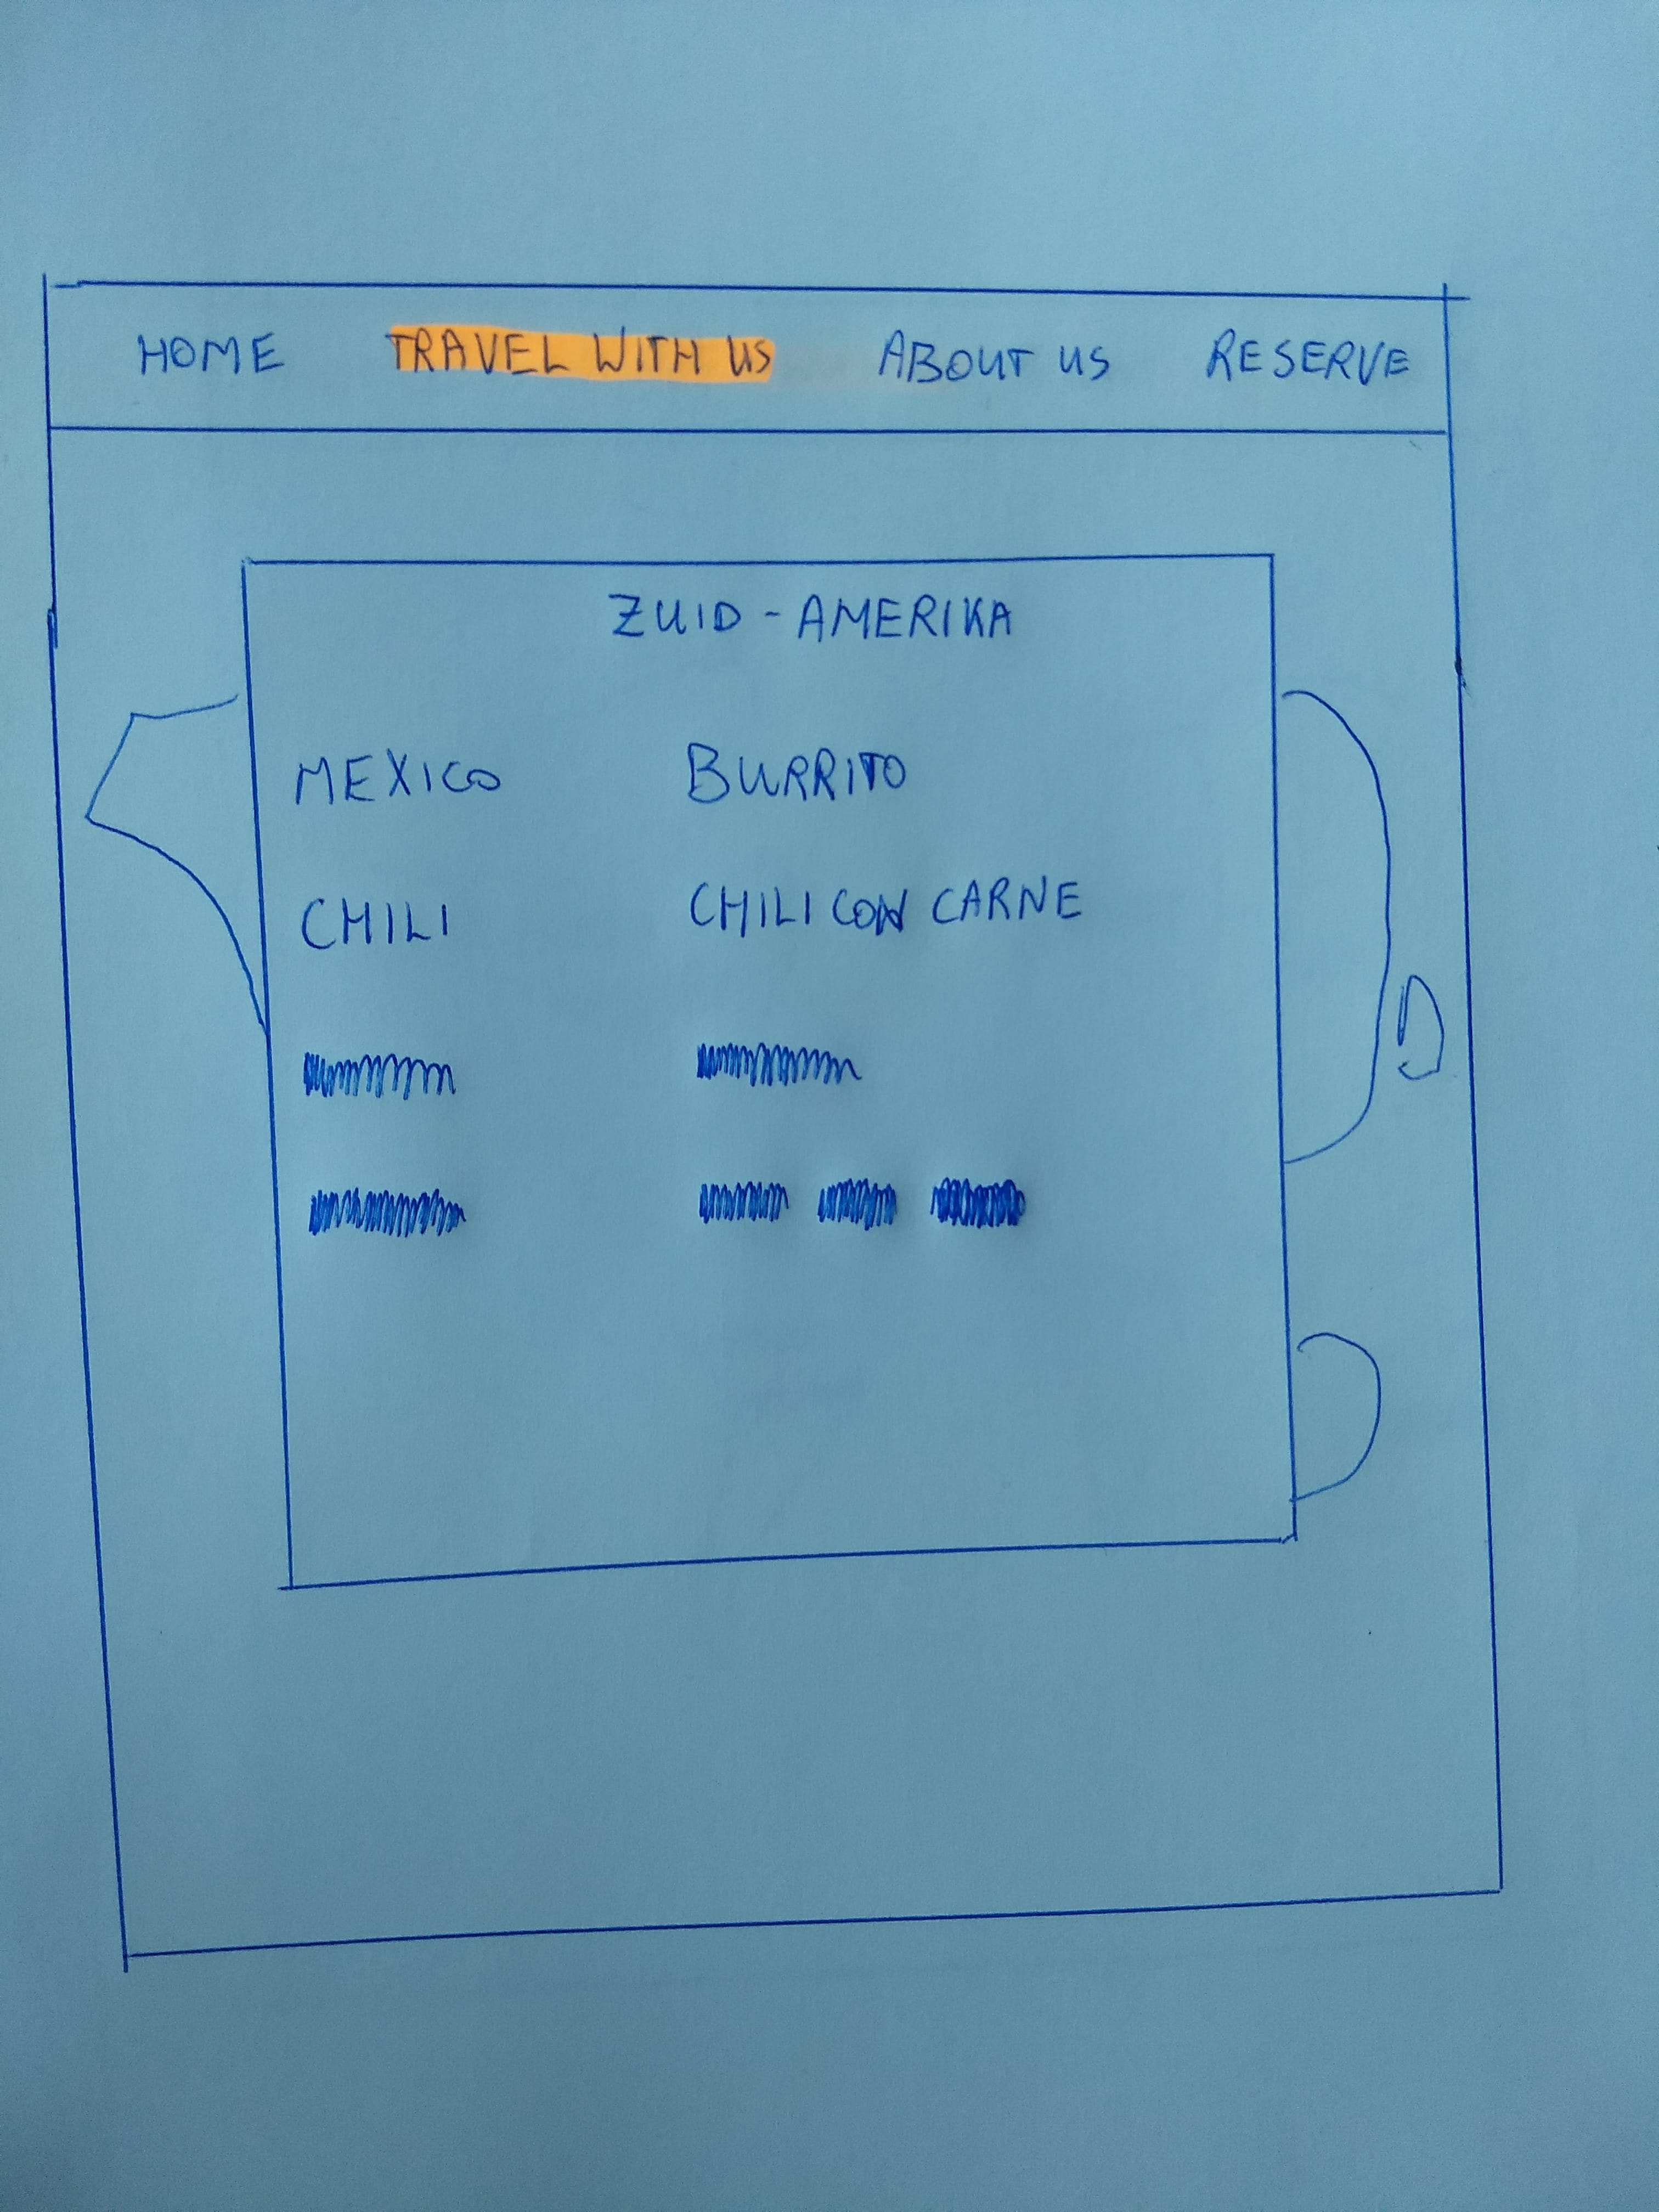 HOME TRAVEL WITH US ABOUT US RESERVE
ZUID - AMERIKA
MEXICO BURRITO
CHILI CHILI CON CARNE